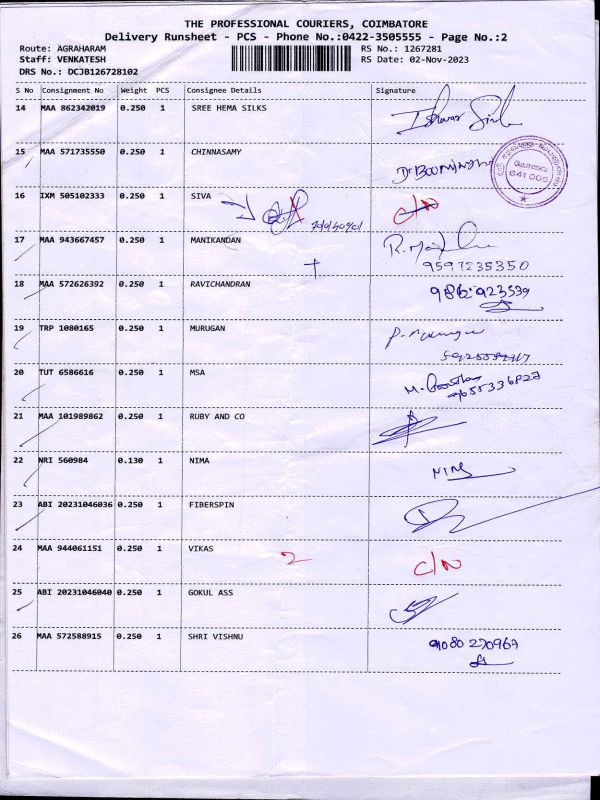 THE PROFESSIONAL COURIERS, COIMBATORE
Delivery Runsheet - PCS - Phone No.:0422-3505555 - Page No.:2
Route: AGRAHARAM RS No.: 1267281
Staff: VENKATESH RS Date: 02-Nov-2023
DRS No.: DCJB126728102
S No Consignment No Weight PCS Consignee Details Signature
14 MAA 862342019 0.250 1 SREE HEMA SILKS
15 MAA 571735550 0.250 1 CHINNASAMY
கோவை
641 005
16 IXM 505102333 0.250 1 SIVA C/N
17 MAA 943667457 0.250 1 MANIKANDAN
9597235350
18 MAA 572626392 0.250 1 RAVICHANDRAN
19 TRP 1080165 0.250 1 MURUGAN
20 TUT 6586616 0.250 1 MSA
21 MAA 101989862 0.250 1 RUBY AND CO
22 NRI 560984 0.130 1 NIMA
23 ABI 20231046036 0.250 1 FIBERSPIN
24 MAA 944061151 0.250 1 VIKAS 2 C/N
25 ABI 20231046040 0.250 1 GOKUL ASS
26 MAA 572588915 0.250 1 SHRI VISHNU